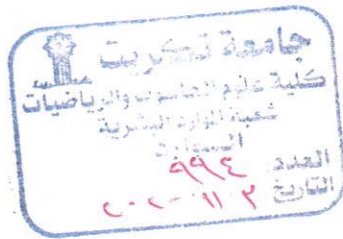 جامعة تكريت
كلية علوم الحاسوب والرياضيات
شعبة الموارد البشرية
العدد ٩٩٤
التاريخ ٢ / ١١ / ٢٠٢٠